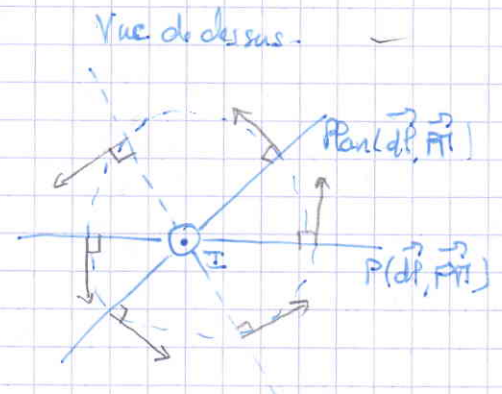 Vue de dessus.
Plan(dl, PM)
I
P(dl, PM)